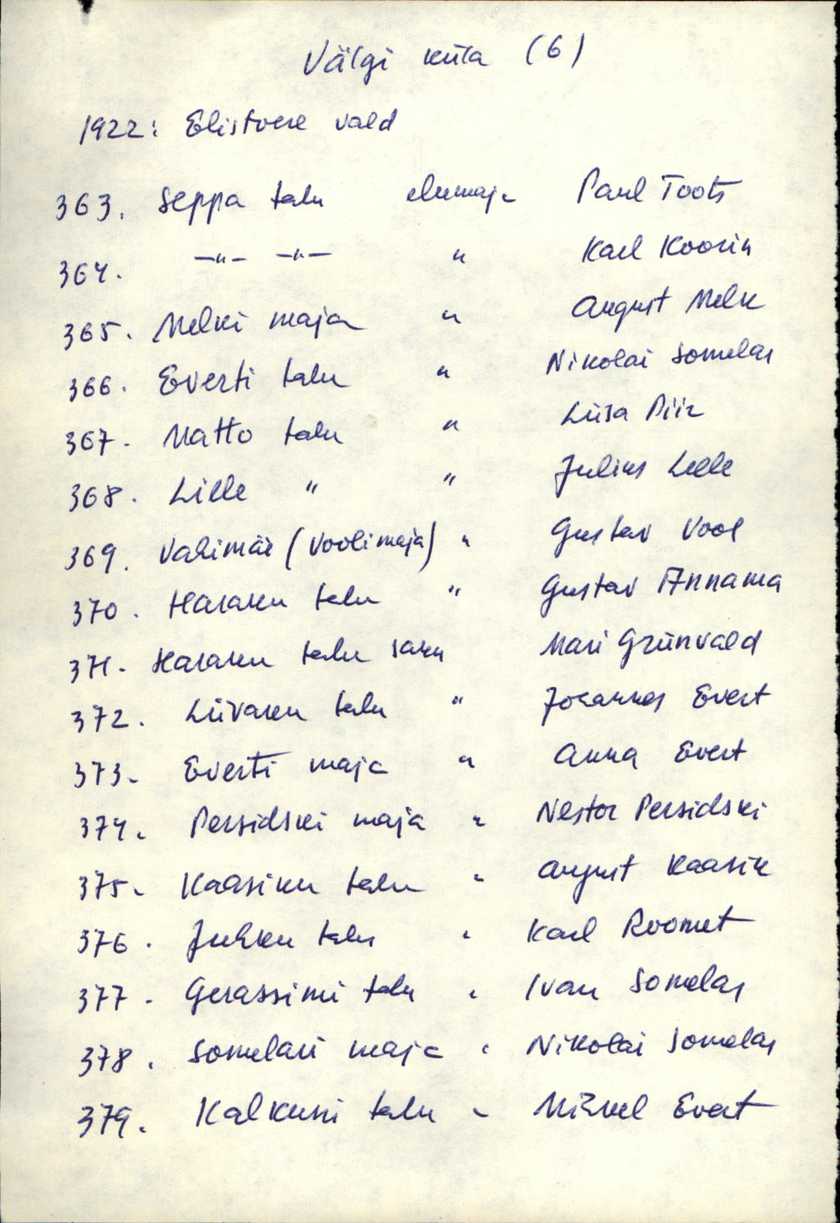 Välgi küla (6)
1922: Elistvere vald
363. Seppa talu elumaja Paul Toots
364. —"— —"— " Karl Koorin
365. Melki maja " August Melk
366. Everti talu " Nikolai Somelar
367. Matto talu " Liisa Piir
368. Lille " " Julius Lelle
369. Vahimäe (Voolimaja) " Gustav Vool
370. Haraku talu " Gustav Annama
371. Haraku talu saun Mari Grünvald
372. Liivaku talu " Johannes Evert
373. Everti maja " Anna Evert
374. Persidski maja " Nestor Persidski
375. Kaasiku talu " August Kaasik
376. Juhku talu " Karl Roomet
377. Gerassimi talu " Ivan Somelar
378. Somelari maja " Nikolai Somelar
379. Kalkuni talu " Mihkel Evert